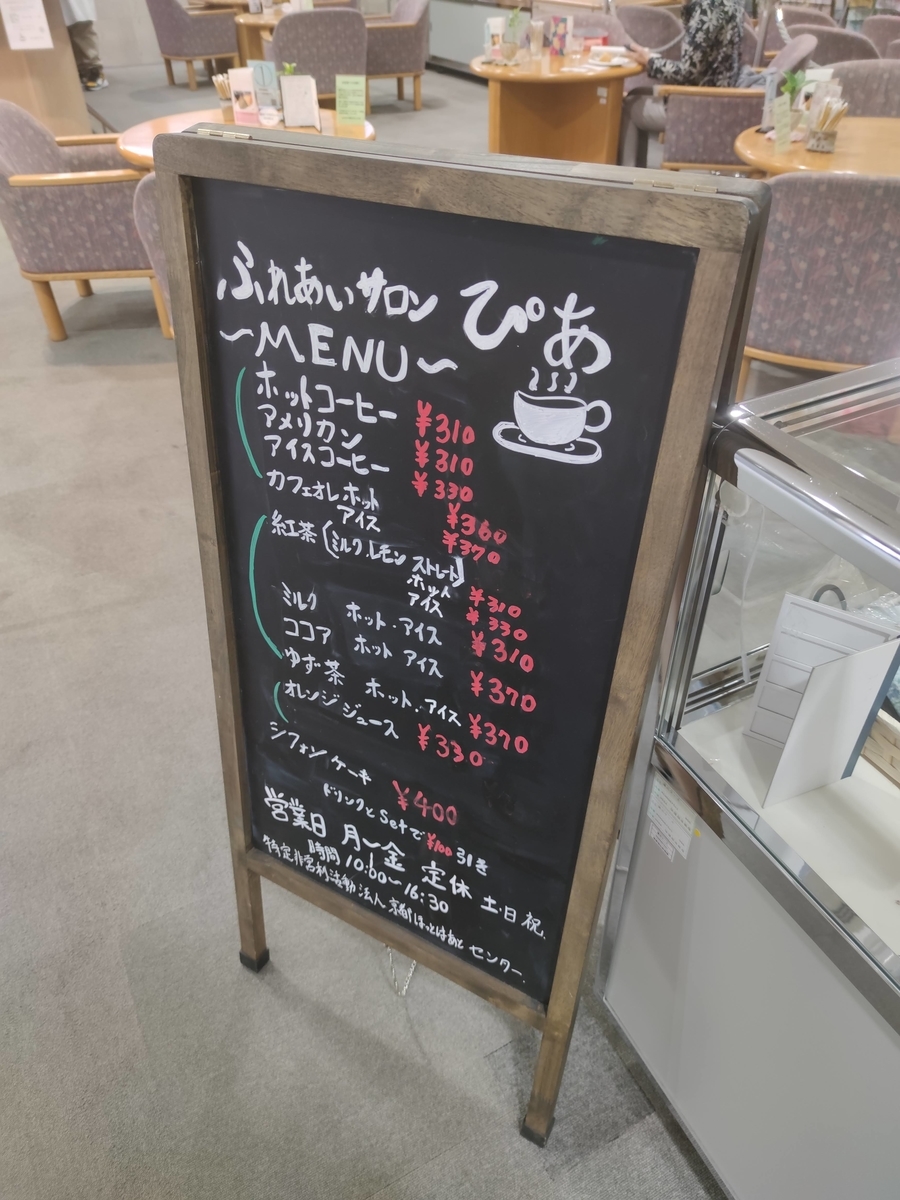 ふれあいサロン ぴあ
~MENU~
ホットコーヒー ¥310
アメリカン ¥310
アイスコーヒー ¥330
カフェオレ ホット ¥360
アイス ¥370
紅茶(ミルク.レモン ストレート)
ホット ¥310
アイス ¥330
ミルク ホット・アイス ¥310
ココア ホット アイス ¥370
ゆず茶 ホット・アイス ¥370
オレンジジュース ¥330
シフォンケーキ ¥400
ドリンクとSetで¥100引き
営業日 月~金 定休 土・日 祝.
時間 10:00~16:30
特定非営利活動法人 京都ほっとはあとセンター